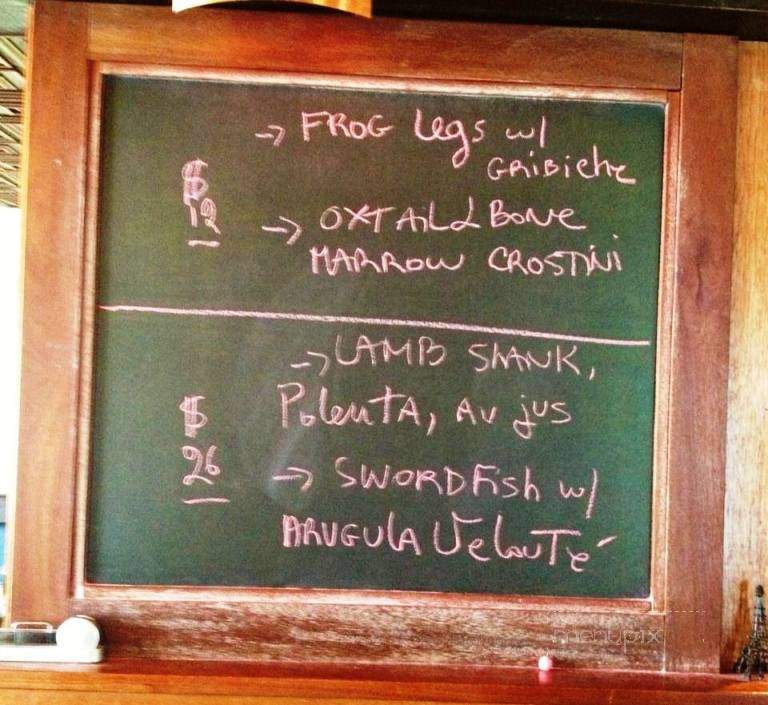 → FROG Legs w/
GRIBICHE
$
12
→ OXTAIL & BONE
MARROW CROSTINI
→ LAMB SHANK,
$
Polenta, AU jus
26
→ SWORDFish w/
ARUGULA Velouté
menupix